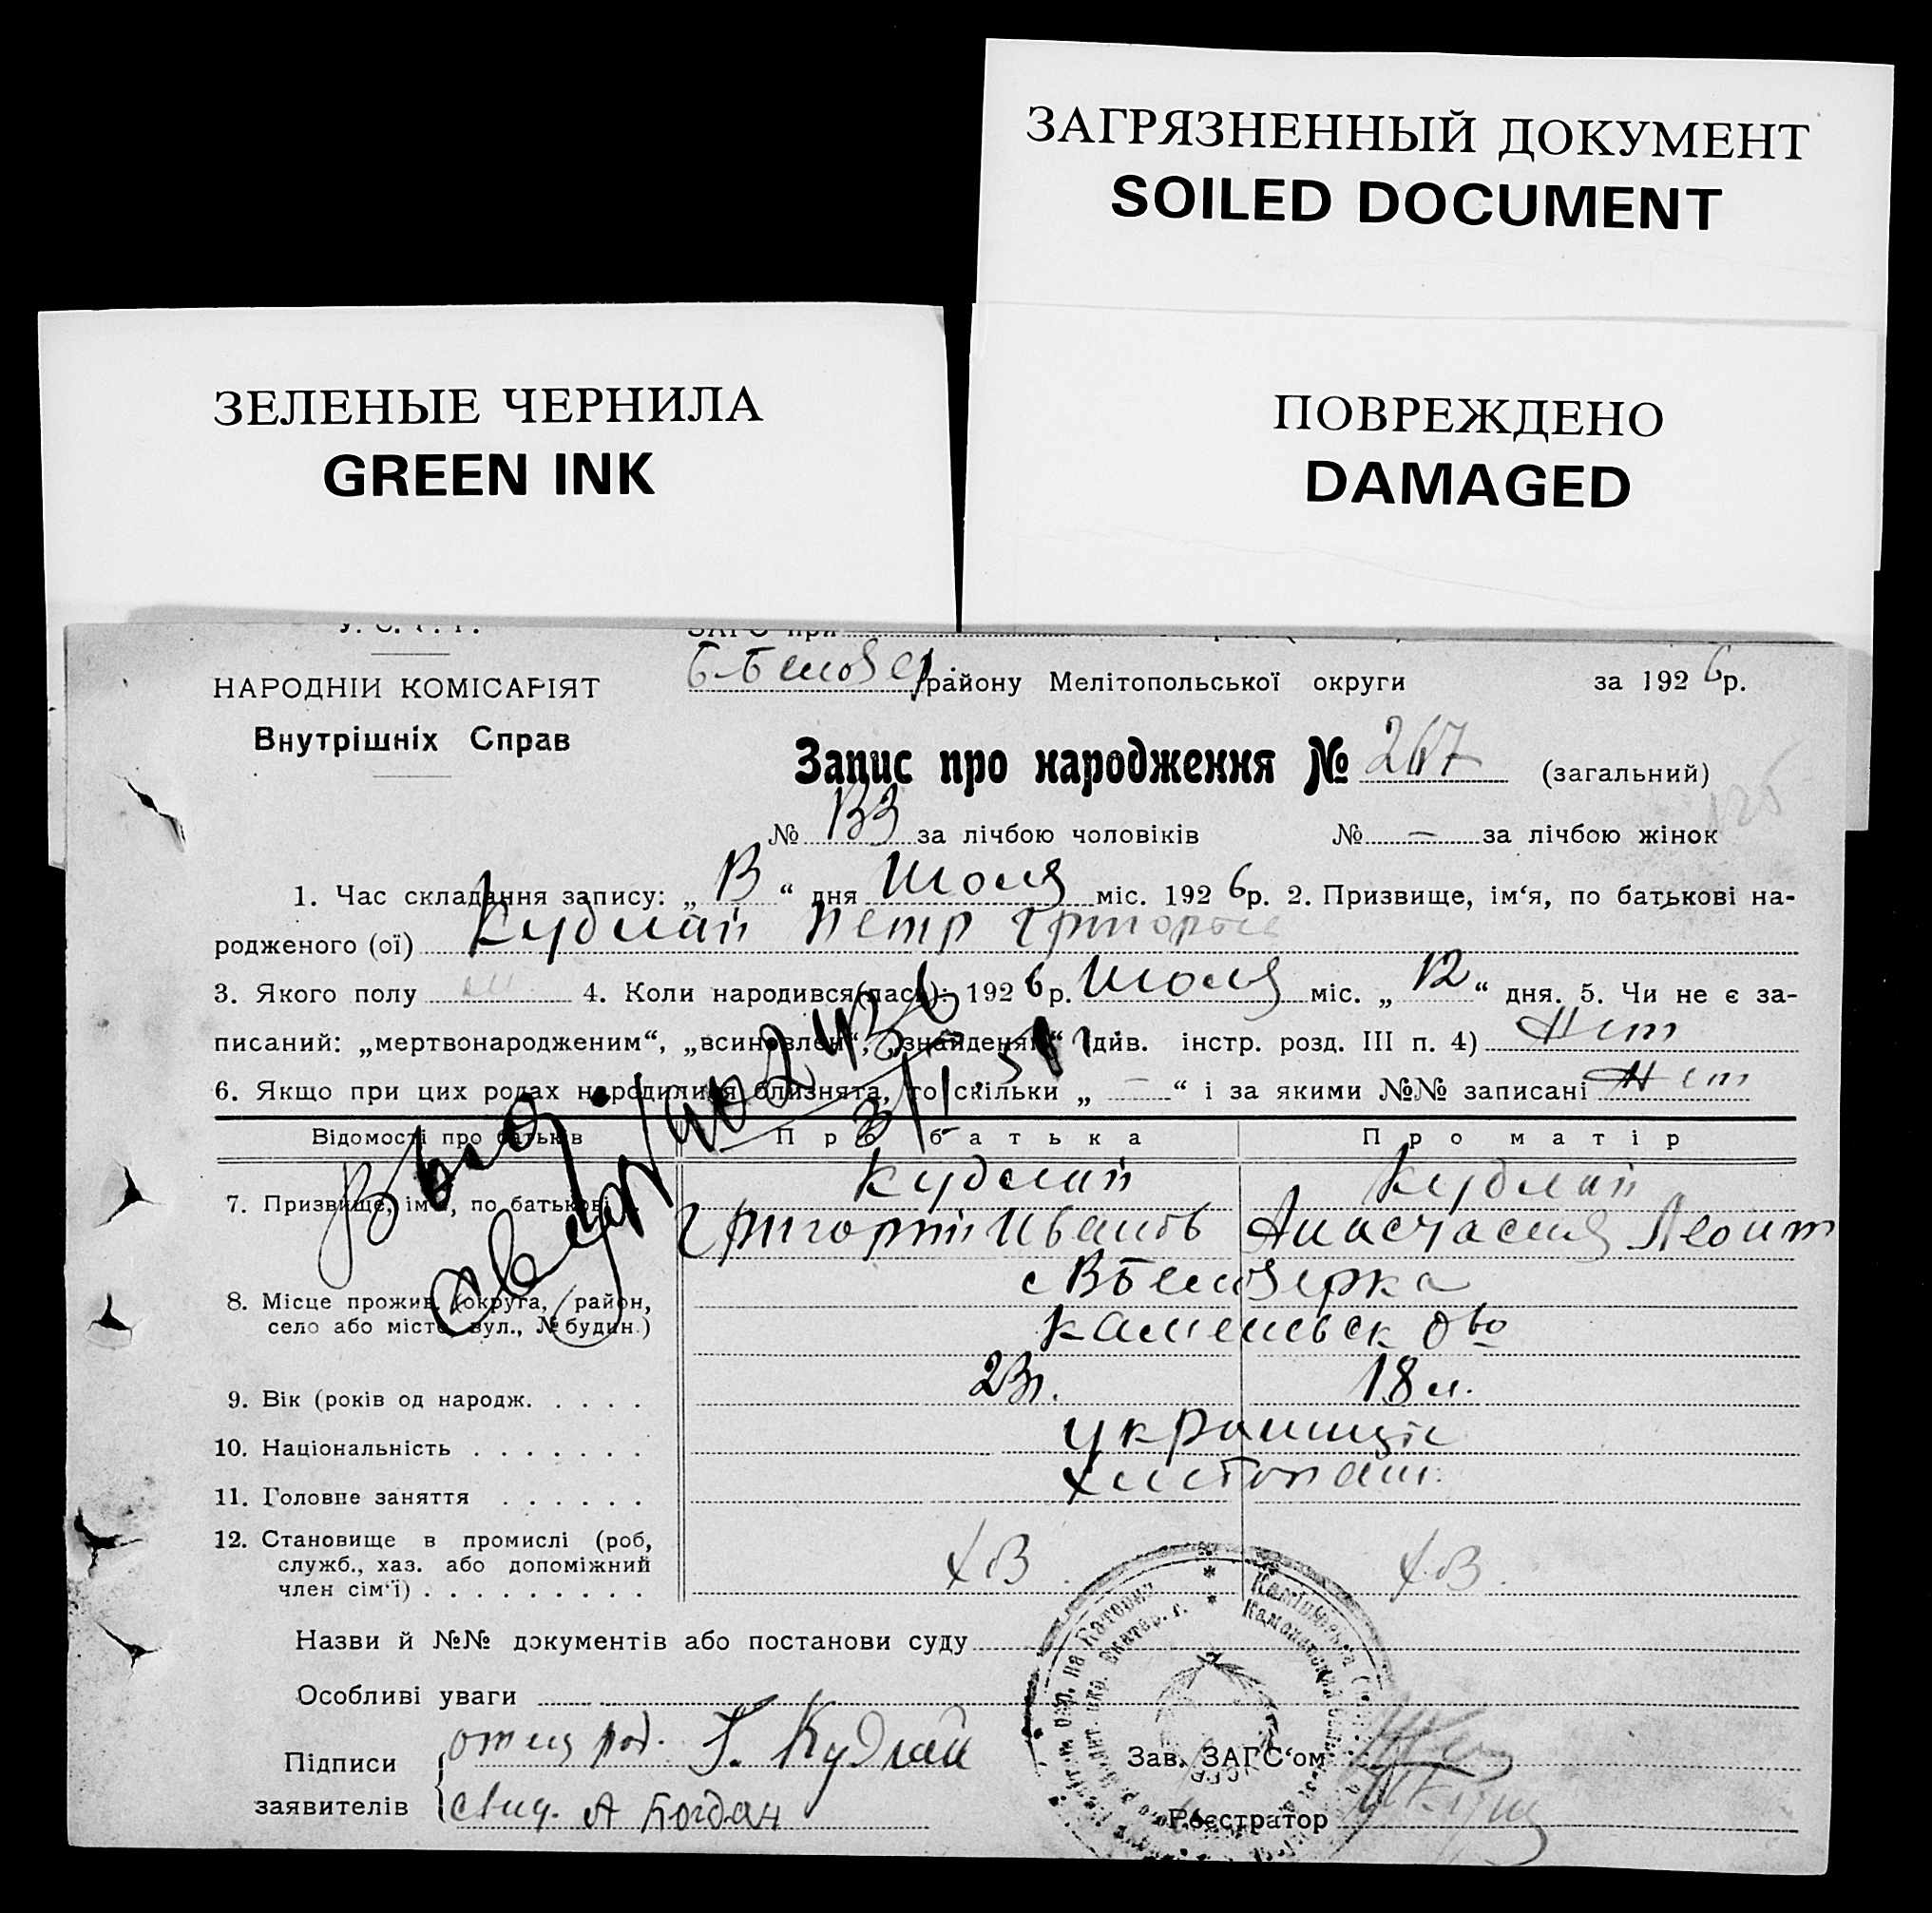 ЗАГРЯЗНЕННЫЙ ДОКУМЕНТ
SOILED DOCUMENT
ЗЕЛЕНЫЕ ЧЕРНИЛА
GREEN INK
ПОВРЕЖДЕНО
DAMAGED
У. С. Р. Р.
ЗАГС при
НАРОДНІЙ КОМІСАРІЯТ
Внутрішніх Справ
району Мелітопольської округи за 1926р.
Запис про народження № 267 (загальний)
№ 133 за лічбою чоловіків № — за лічбою жінок
1. Час складання запису: „ 13 “ дня Июля міс. 1926р. 2. Призвище, ім‘я, по батькові на-
родженого (ої) Кудлай Петр Григорьев
3. Якого полу м. 4. Коли народився(лась): 1926р. Июля міс. „ 12 “ дня. 5. Чи не є за-
писаний: „мертвонародженим“, „всиновлен“, „знайденим“ (див. інстр. розд. III п. 4) Нет
6. Якщо при цих родах народилися близнята, то скільки „ — “ і за якими №№ записані Нет
Відомості про батьків Про батька Про матір
7. Призвище, ім‘я, по батькові Кудлай Кудлай
Григорий Иванов Анастасия Леонт
8. Місце прожив. (округа, район,
село або місто, вул., № будин.)
с В Белозерка
Каменск о-во
9. Вік (років од народж. . . . . 23 г. 18 л.
10. Національність . . . . . . . украинци
11. Головне заняття . . . . . . хлебопаш.
12. Становище в промислі (роб,
служб., хаз. або допоміжний
член сім‘ї) . . . . . . . . .
Назви й №№ документів або постанови суду
Особливі уваги
Підписи заявителів
отец род. Г. Кудлай
свид. А Богдан
Зав. ЗАГС‘ом
Реєстратор